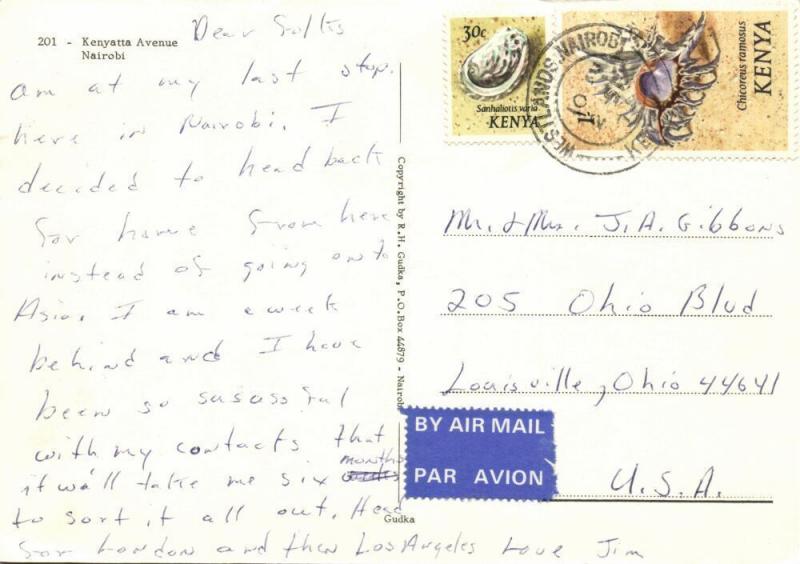 201 - Kenyatta Avenue
Nairobi
Dear Folks
am at my last stop.
here in Nairobi. I
decided to head back
for home from here
instead of going onto
Asia. I am a week
behind and I have
been so susassful
with my contacts that
it wall take me six months
to sort it all out. Head
for London and then Los Angeles Love Jim
Copyright by R.H. Gudka, P.O.Box 44879 - Nairobi
Gudka
30c
Sanhaliotis varia
KENYA
Chicoreus ramosus
KENYA
WESTLANDS NAIROBI
Mr. & Mrs. J.A. Gibbons
205 Ohio Blvd
Louisville, Ohio 44641
U.S.A.
BY AIR MAIL
PAR AVION